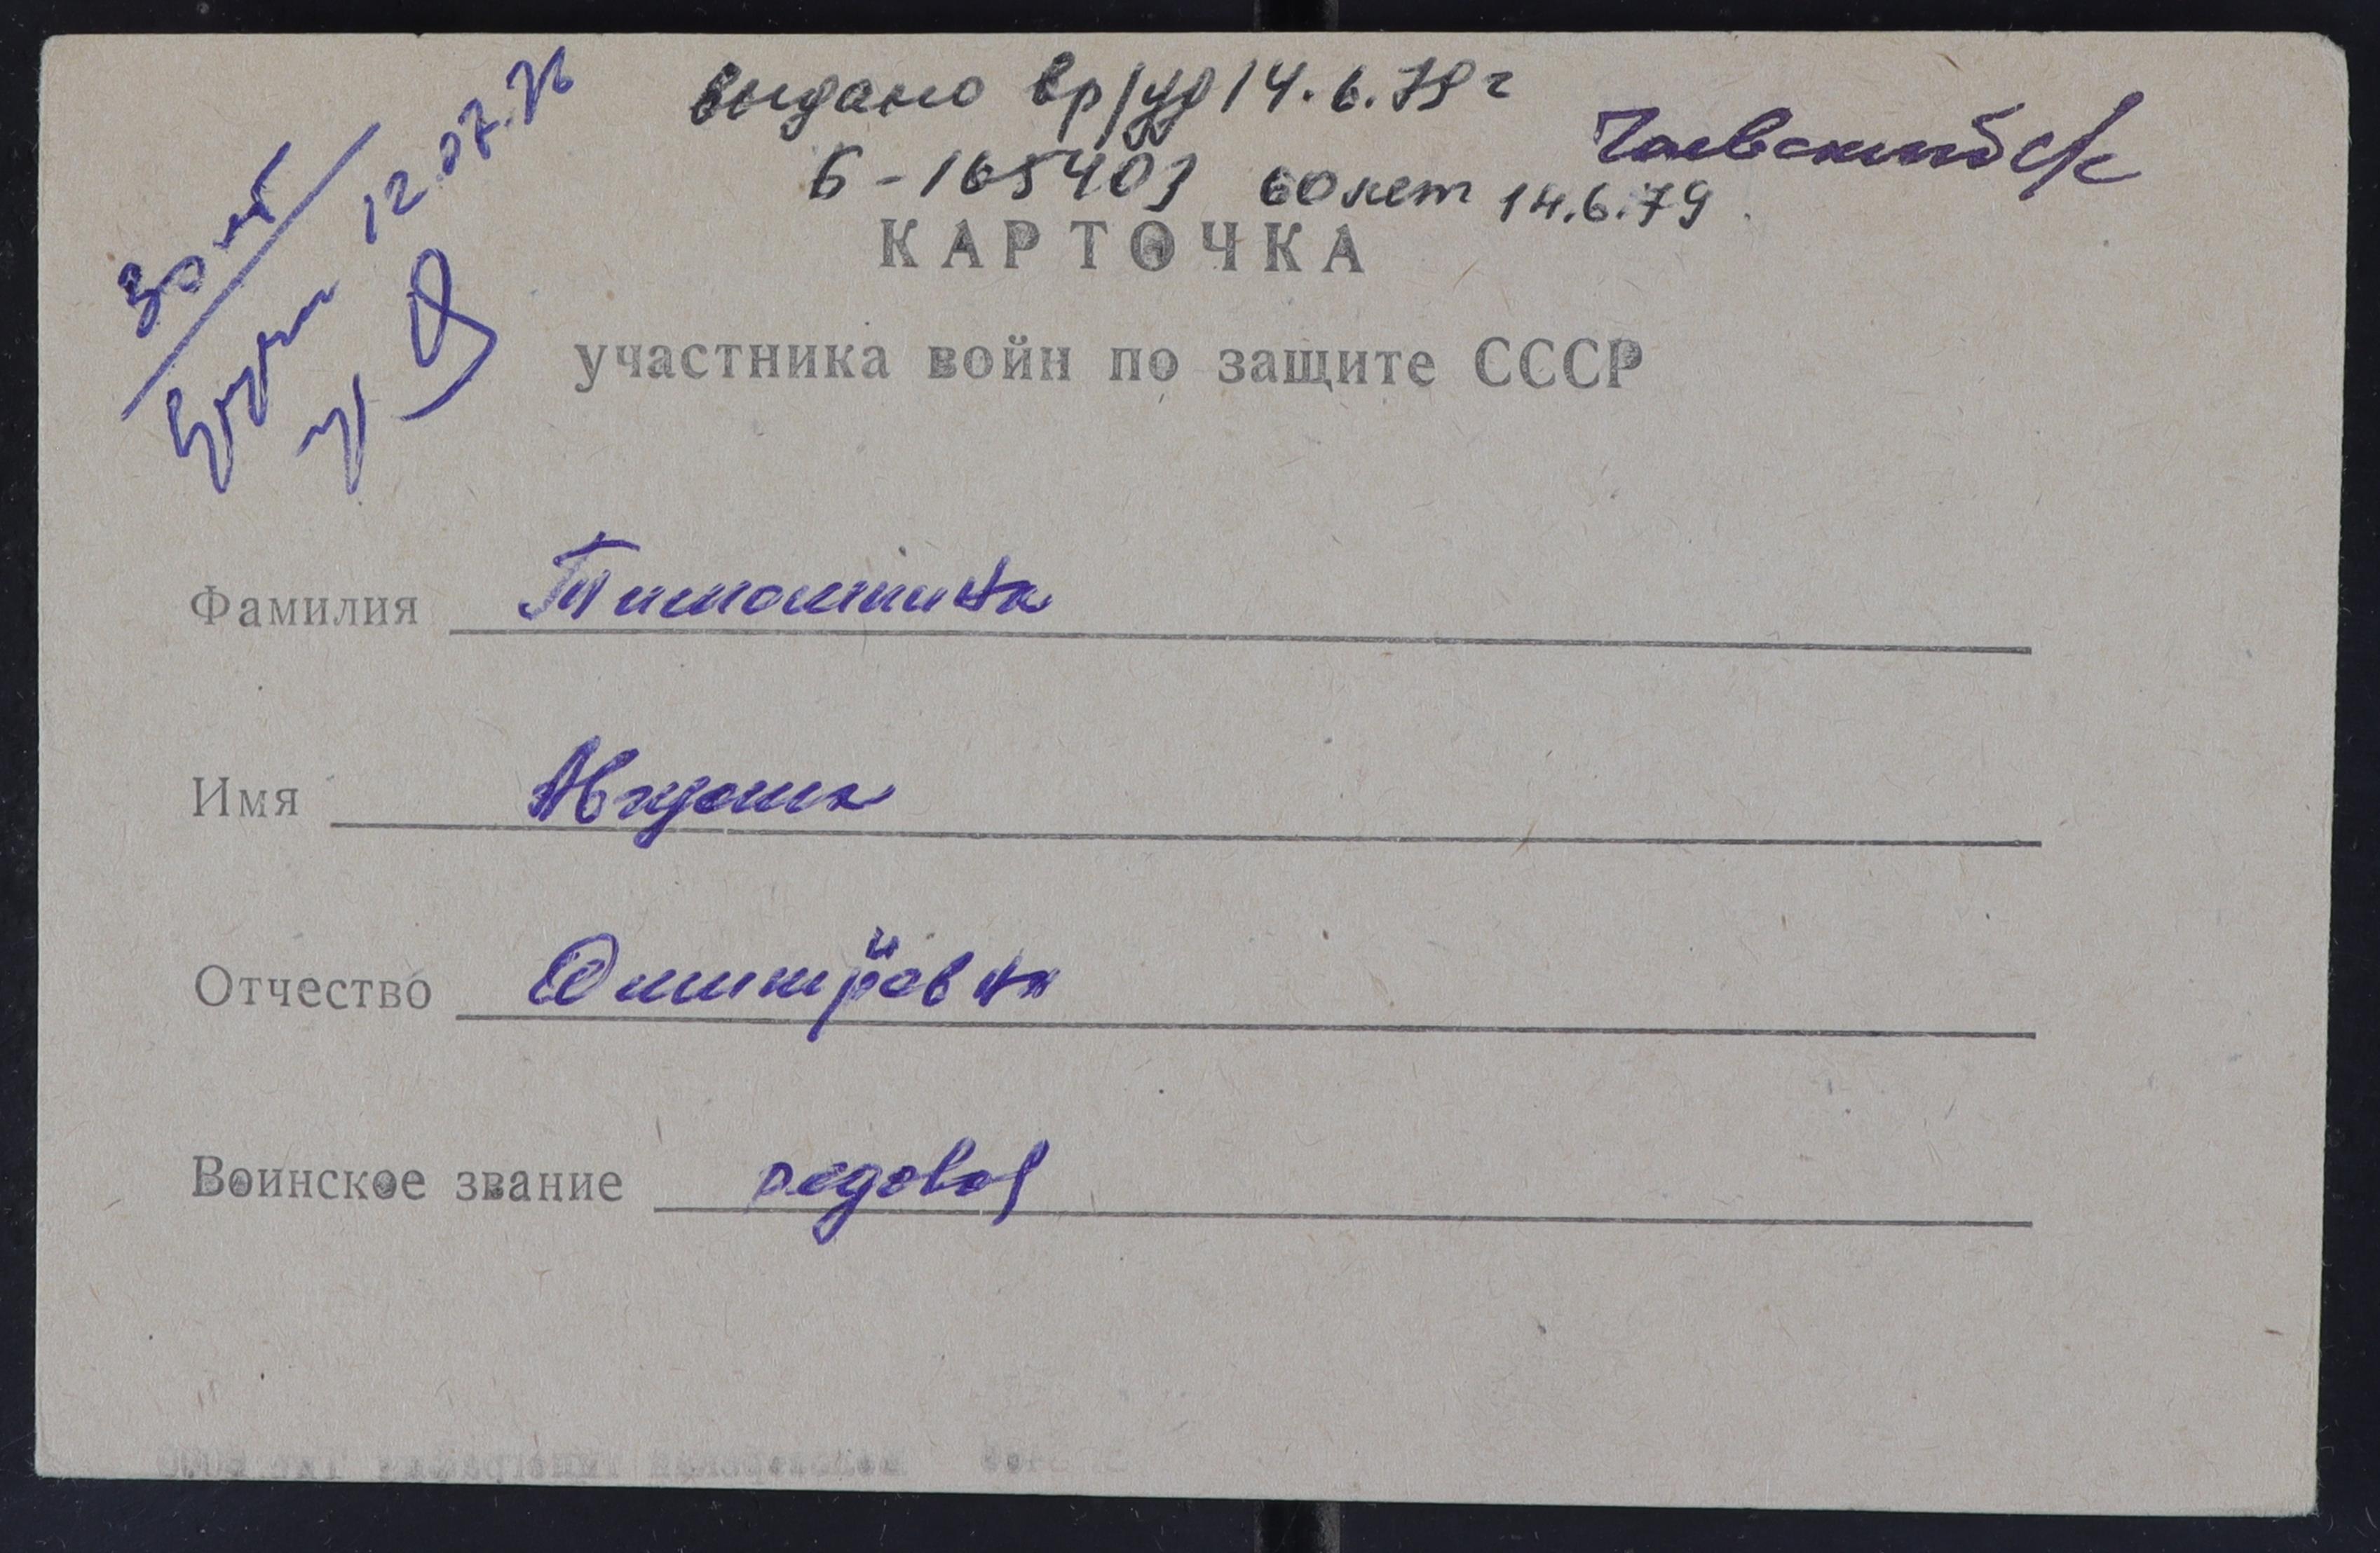 выдано вр/уд 14.6.79 г
Б-165403 60 лет 14.6.79
12.07.76
КАРТОЧКА
участника войн по защите СССР
Фамилия Тимошкина
Имя
Отчество Дмитрӥевна
Воинское звание рядовой